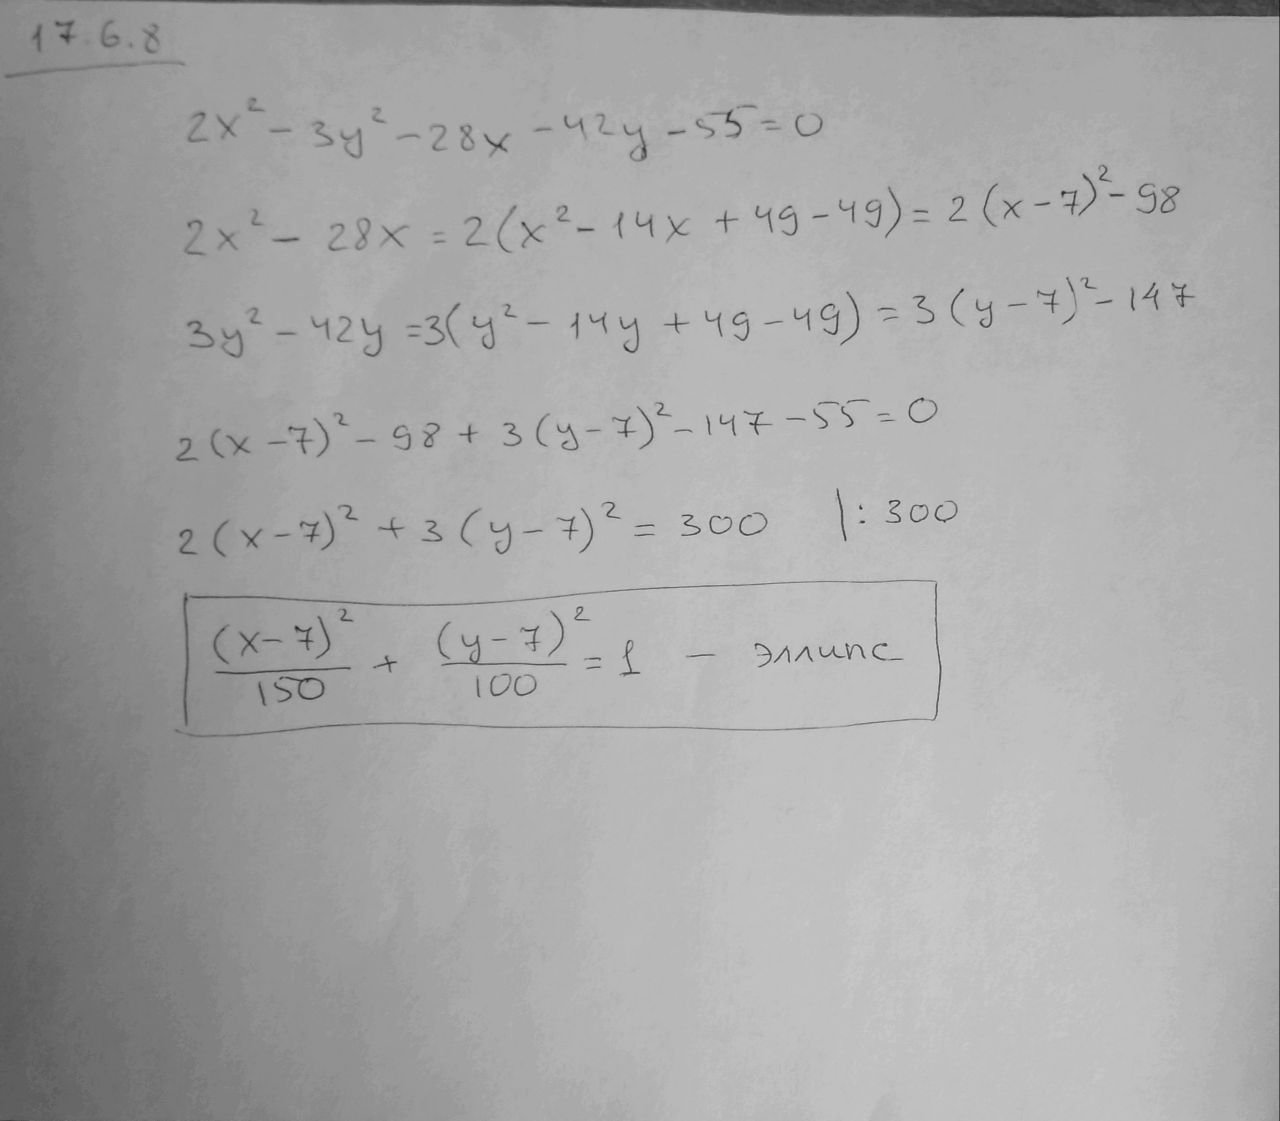 17.6.8
2x² - 3y² - 28x - 42y - 55 = 0
2x² - 28x = 2(x² - 14x + 49 - 49) = 2(x - 7)² - 98
3y² - 42y = 3(y² - 14y + 49 - 49) = 3(y - 7)² - 147
2(x - 7)² - 98 + 3(y - 7)² - 147 - 55 = 0
2(x - 7)² + 3(y - 7)² = 300 |: 300
(x - 7)²/150 + (y - 7)²/100 = 1 - эллипс